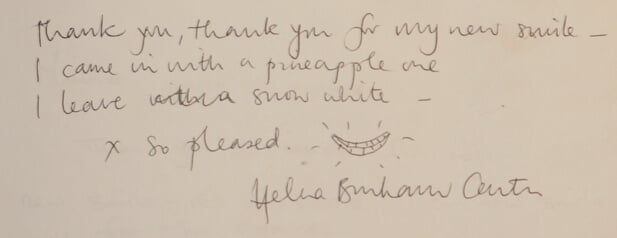 Thank you, thank you for my new smile –
I came in with a pineapple one
I leave with a snow white –
x So pleased.
Helena Bonham Carter